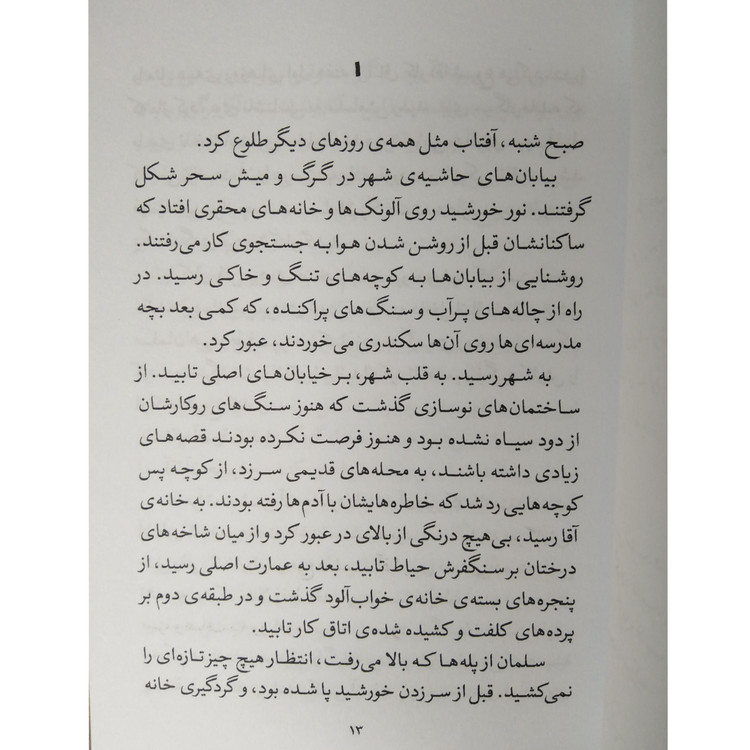 ۱
صبح شنبه، آفتاب مثل همه‌ی روزهای دیگر طلوع کرد.
بیابان‌های حاشیه‌ی شهر در گرگ و میش سحر شکل
گرفتند. نور خورشید روی آلونک‌ها و خانه‌های محقری افتاد که
ساکنانشان قبل از روشن شدن هوا به جستجوی کار می‌رفتند.
روشنایی از بیابان‌ها به کوچه‌های تنگ و خاکی رسید. در
راه از چاله‌های پرآب و سنگ‌های پراکنده، که کمی بعد بچه
مدرسه‌ای‌ها روی آن‌ها سکندری می‌خوردند، عبور کرد.
به شهر رسید. به قلب شهر، بر خیابان‌های اصلی تابید. از
ساختمان‌های نوسازی گذشت که هنوز سنگ‌های روکارشان
از دود سیاه نشده بود و هنوز فرصت نکرده بودند قصه‌های
زیادی داشته باشند، به محله‌های قدیمی سر زد، از کوچه پس
کوچه‌هایی رد شد که خاطره‌هایشان با آدم‌ها رفته بودند. به خانه‌ی
آقا رسید، بی‌هیچ درنگی از بالای در عبور کرد و از میان شاخه‌های
درختان بر سنگفرش حیاط تابید، بعد به عمارت اصلی رسید، از
پنجره‌های بسته‌ی خانه‌ی خواب‌آلود گذشت و در طبقه‌ی دوم بر
پرده‌های کلفت و کشیده شده‌ی اتاق کار تابید.
سلمان از پله‌ها که بالا می‌رفت، انتظار هیچ چیز تازه‌ای را
نمی‌کشید. قبل از سر زدن خورشید پا شده بود، و گردگیری خانه
۱۳